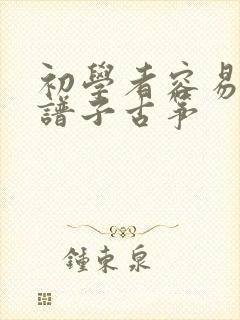 初學者容易
譜子古箏
鍾東泉